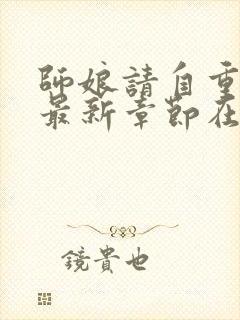 師娘請自重
最新章節在
鏡貴也